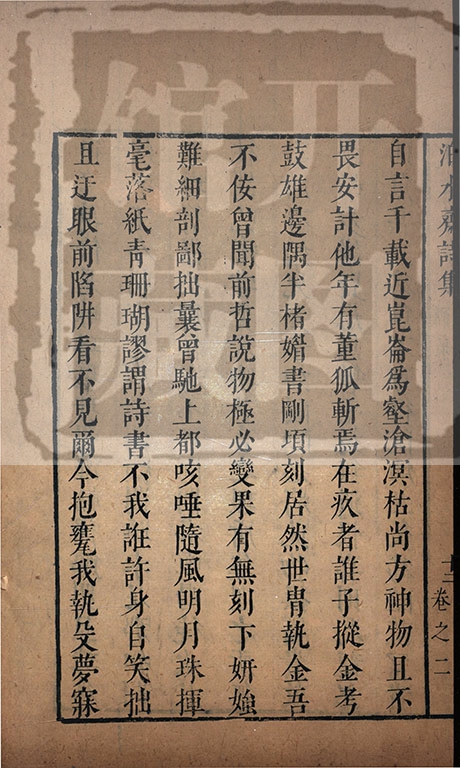 泊水齋詩集
卷之二
自言千載近崑崙爲壑滄溟枯尚方神物且不
畏安計他年有董狐斬焉在疚者誰子摐金考
鼓雄邊隅半楮媚書剛頃刻居然世胄執金吾
不佞曾聞前哲說物極必變果有無刻下妍媸
難細剖鄙拙曩曾馳上都咳唾隨風明月珠揮
毫落紙靑珊瑚謬謂詩書不我誑許身自笑拙
且迂眼前陷阱看不見爾今抱甕我執殳夢寐